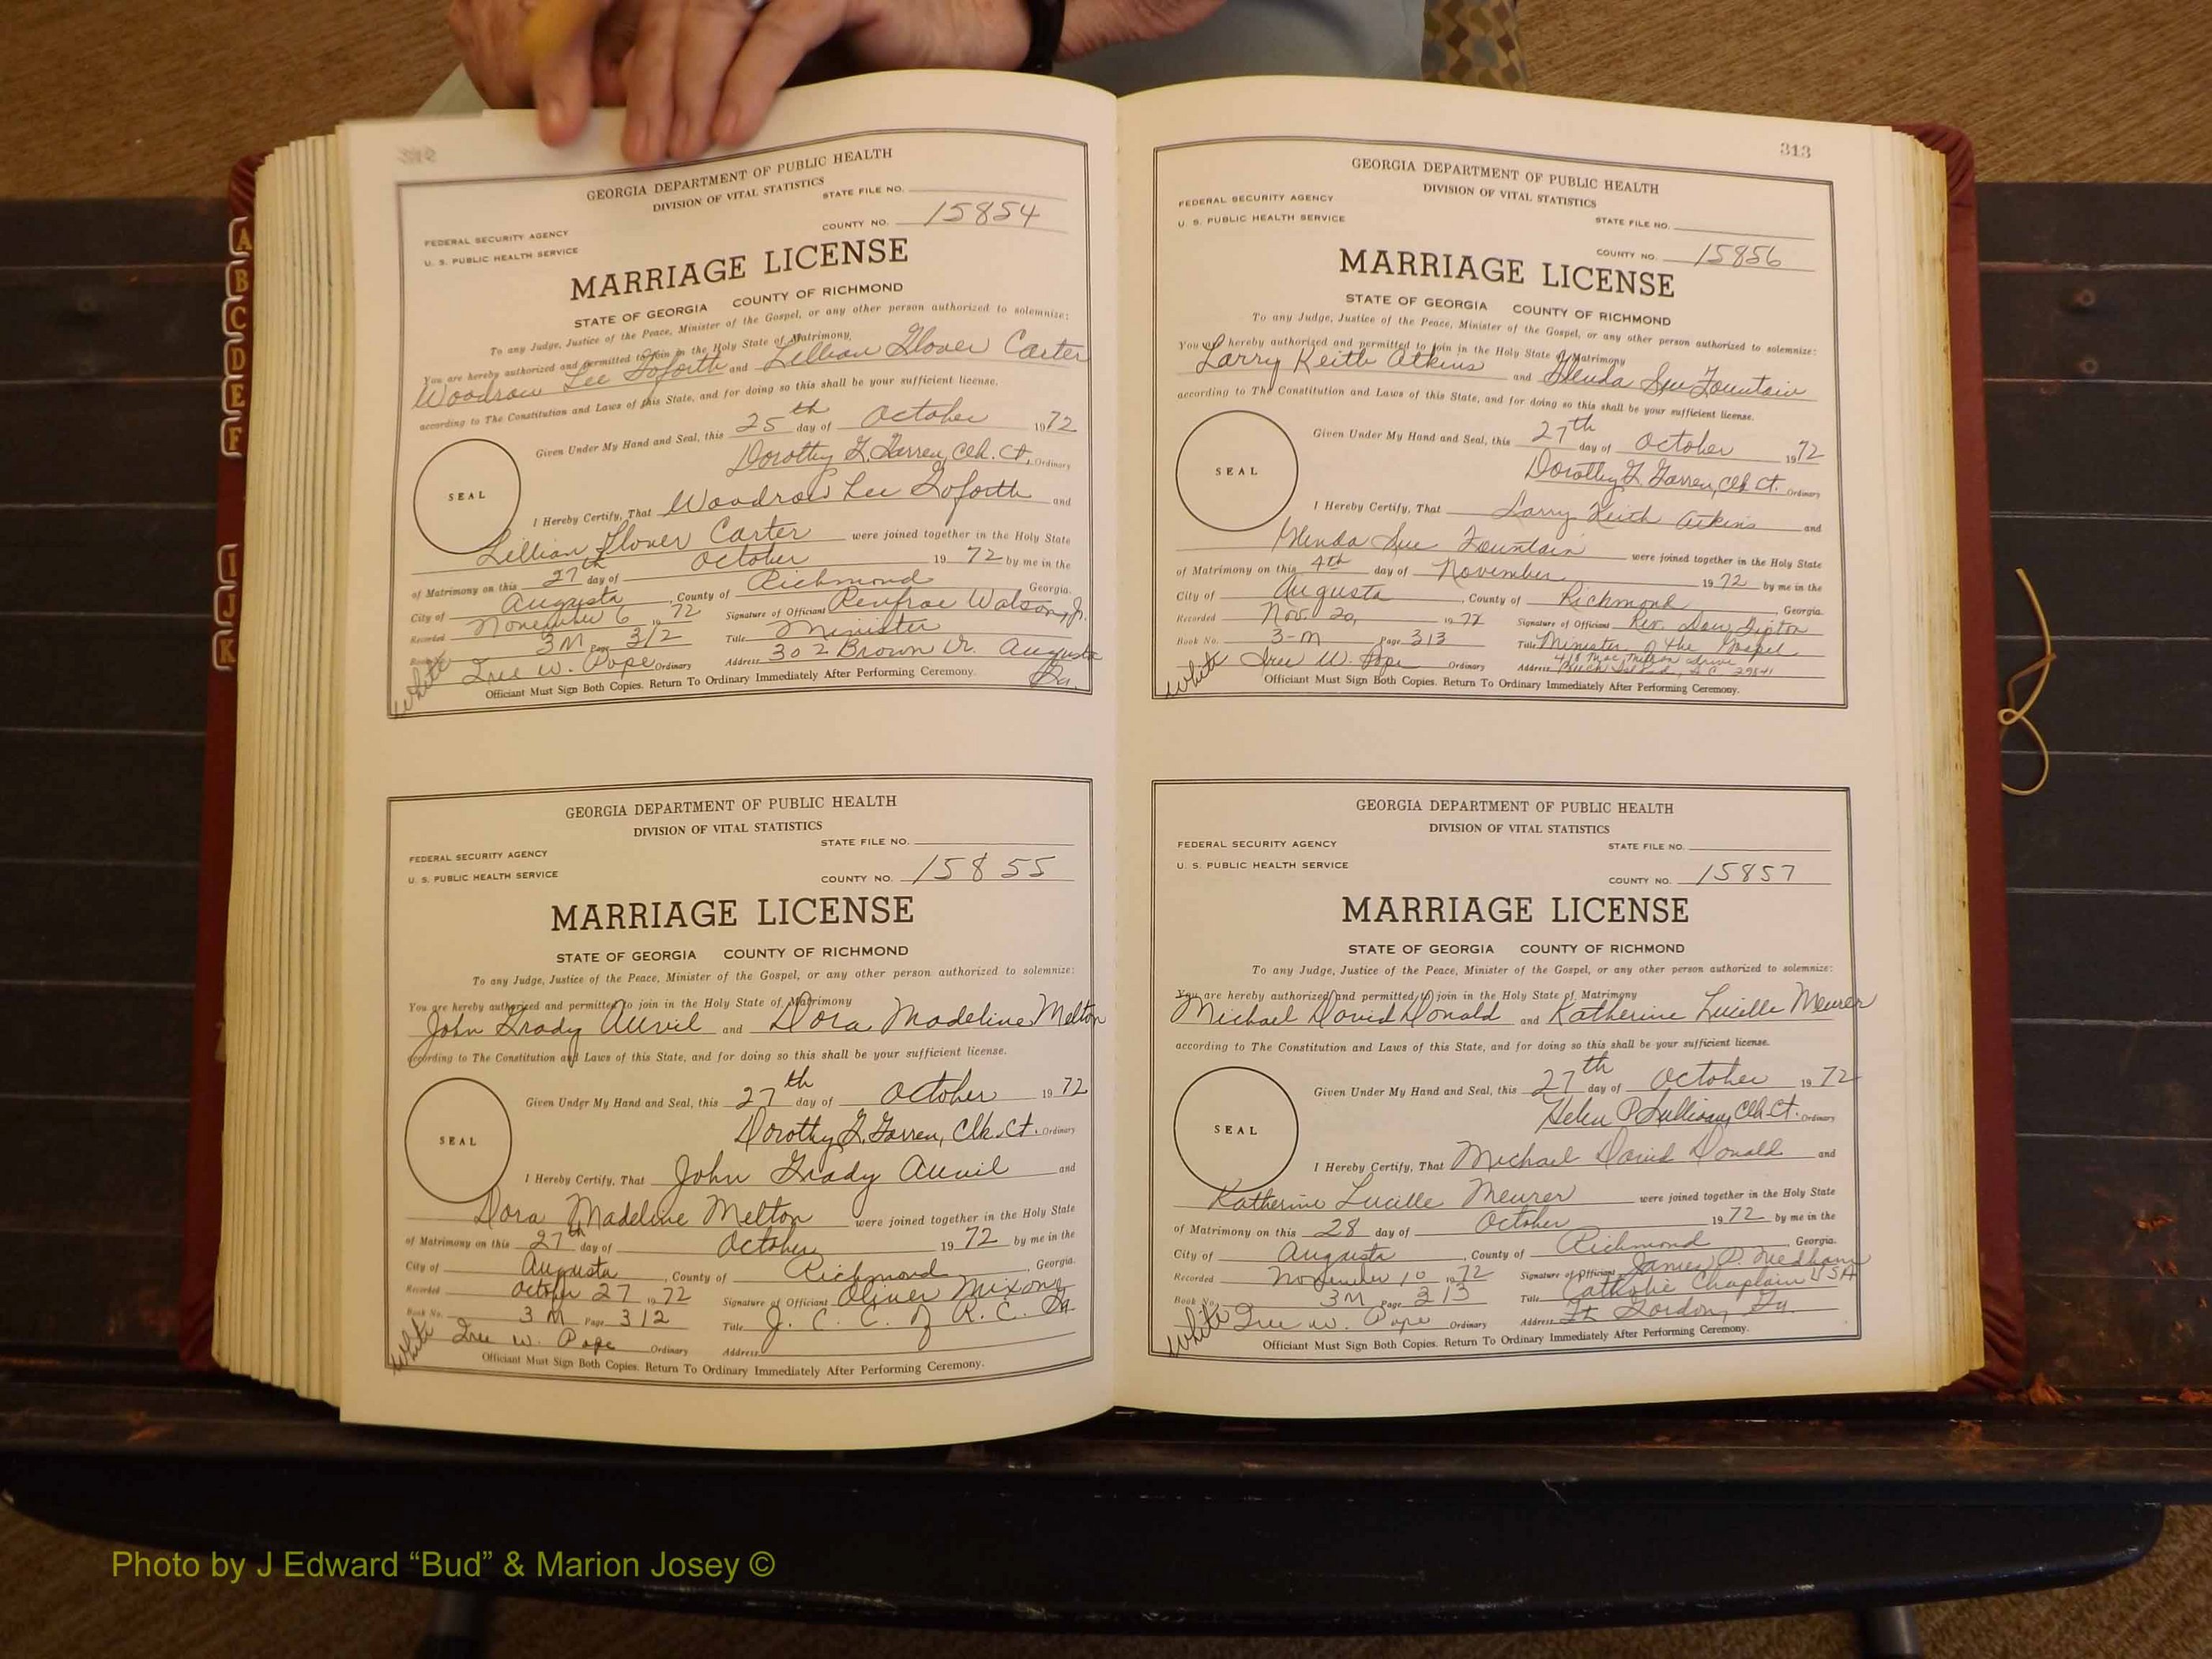 A
B
C
D
E
F
I
J
K
312
GEORGIA DEPARTMENT OF PUBLIC HEALTH
DIVISION OF VITAL STATISTICS
STATE FILE NO.
COUNTY NO. 15854
FEDERAL SECURITY AGENCY
U. S. PUBLIC HEALTH SERVICE
MARRIAGE LICENSE
STATE OF GEORGIA COUNTY OF RICHMOND
To any Judge, Justice of the Peace, Minister of the Gospel, or any other person authorized to solemnize:
You are hereby authorized and permitted to join in the Holy State of Matrimony
Woodrow Lee Goforth and Lillian Glover Carter
according to The Constitution and Laws of this State, and for doing so this shall be your sufficient license.
Given Under My Hand and Seal, this 25th day of October 1972
Dorothy G. Garren, Clk. Ct. Ordinary
SEAL
I Hereby Certify, That Woodrow Lee Goforth and
Lillian Glover Carter were joined together in the Holy State
of Matrimony on this 27th day of October 1972 by me in the
City of Augusta, County of Richmond Georgia.
Recorded November 6 1972 Signature of Officiant Renfroe Watson, Jr.
Book No. 3M Page 312 Title Minister
White Iree W. Pope Ordinary Address 302 Brown Dr. Augusta Ga.
Officiant Must Sign Both Copies. Return To Ordinary Immediately After Performing Ceremony.
GEORGIA DEPARTMENT OF PUBLIC HEALTH
DIVISION OF VITAL STATISTICS
STATE FILE NO.
FEDERAL SECURITY AGENCY
U. S. PUBLIC HEALTH SERVICE
COUNTY NO. 15855
MARRIAGE LICENSE
STATE OF GEORGIA COUNTY OF RICHMOND
To any Judge, Justice of the Peace, Minister of the Gospel, or any other person authorized to solemnize:
You are hereby authorized and permitted to join in the Holy State of Matrimony
John Grady Auvil and Dora Madeline Melton
according to The Constitution and Laws of this State, and for doing so this shall be your sufficient license.
Given Under My Hand and Seal, this 27th day of October 1972
Dorothy G. Garren, Clk. Ct. Ordinary
SEAL
I Hereby Certify, That John Grady Auvil and
Dora Madeline Melton were joined together in the Holy State
of Matrimony on this 27th day of October 1972 by me in the
City of Augusta, County of Richmond, Georgia.
Recorded October 27 1972 Signature of Officiant Oliver Mixon
Book No. 3M Page 312 Title J. C. C. of R. C. Ga.
White Iree W. Pope Ordinary Address
Officiant Must Sign Both Copies. Return To Ordinary Immediately After Performing Ceremony.
313
GEORGIA DEPARTMENT OF PUBLIC HEALTH
DIVISION OF VITAL STATISTICS
FEDERAL SECURITY AGENCY
U. S. PUBLIC HEALTH SERVICE
STATE FILE NO.
COUNTY NO. 15856
MARRIAGE LICENSE
STATE OF GEORGIA COUNTY OF RICHMOND
To any Judge, Justice of the Peace, Minister of the Gospel, or any other person authorized to solemnize:
You are hereby authorized and permitted to join in the Holy State of Matrimony
Larry Keith Atkins and Glenda Sue Fountain
according to The Constitution and Laws of this State, and for doing so this shall be your sufficient license.
Given Under My Hand and Seal, this 27th day of October 1972
Dorothy G. Garren, Clk Ct. Ordinary
SEAL
I Hereby Certify, That Larry Keith Atkins and
Glenda Sue Fountain were joined together in the Holy State
of Matrimony on this 4th day of November 1972 by me in the
City of Augusta, County of Richmond, Georgia.
Recorded Nov. 20, 1972 Signature of Officiant Rev. Dan Tipton
Book No. 3-M Page 313 Title Minister of the Gospel
418 Mac Millan drive
White Iree W. Pope Ordinary Address Beech Island, S.C. 29841
Officiant Must Sign Both Copies. Return To Ordinary Immediately After Performing Ceremony.
GEORGIA DEPARTMENT OF PUBLIC HEALTH
DIVISION OF VITAL STATISTICS
FEDERAL SECURITY AGENCY
STATE FILE NO.
U. S. PUBLIC HEALTH SERVICE
COUNTY NO. 15857
MARRIAGE LICENSE
STATE OF GEORGIA COUNTY OF RICHMOND
To any Judge, Justice of the Peace, Minister of the Gospel, or any other person authorized to solemnize:
You are hereby authorized and permitted to join in the Holy State of Matrimony
Michael David Donald and Katherine Lucille Meurer
according to The Constitution and Laws of this State, and for doing so this shall be your sufficient license.
Given Under My Hand and Seal, this 27th day of October 1972
Helen P. Sullivan, Clk. Ct. Ordinary
SEAL
I Hereby Certify, That Michael David Donald and
Katherine Lucille Meurer were joined together in the Holy State
of Matrimony on this 28 day of October 1972 by me in the
City of Augusta, County of Richmond, Georgia.
Recorded November 10 1972 Signature of Officiant James P. Needham
Book No. 3M Page 313 Title Catholic Chaplain USA
White Iree W. Pope Ordinary Address Ft Gordon, Ga.
Officiant Must Sign Both Copies. Return To Ordinary Immediately After Performing Ceremony.
Photo by J Edward “Bud” & Marion Josey ©